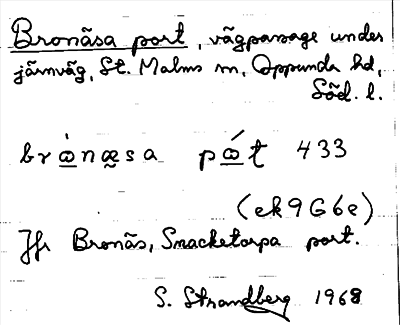 Bronäsa port, vägpassage under
järnväg, St. Malms sn, Oppunda hd,
Söd. l.
brὼnæsa pώt 433
(ek9G6e)
Jfr Bronäs, Smacketorpa port.
S. Strandberg 1968